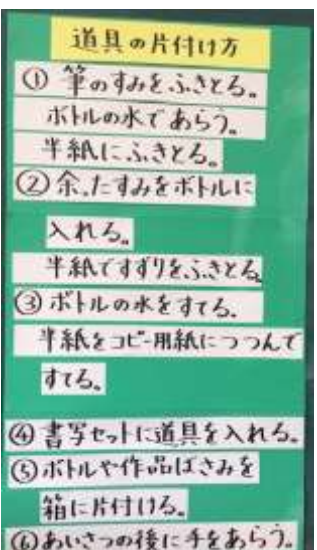 道具の片付け方
① 筆のすみをふきとる。
ボトルの水であらう。
半紙にふきとる。
② 余ったすみをボトルに
入れる。
半紙ですずりをふきとる。
③ ボトルの水をすてる。
半紙をコピー用紙につつんで
すてる。
④ 書写セットに道具を入れる。
⑤ ボトルや作品ばさみを
箱に片付ける。
⑥ あいさつの後に手をあらう。